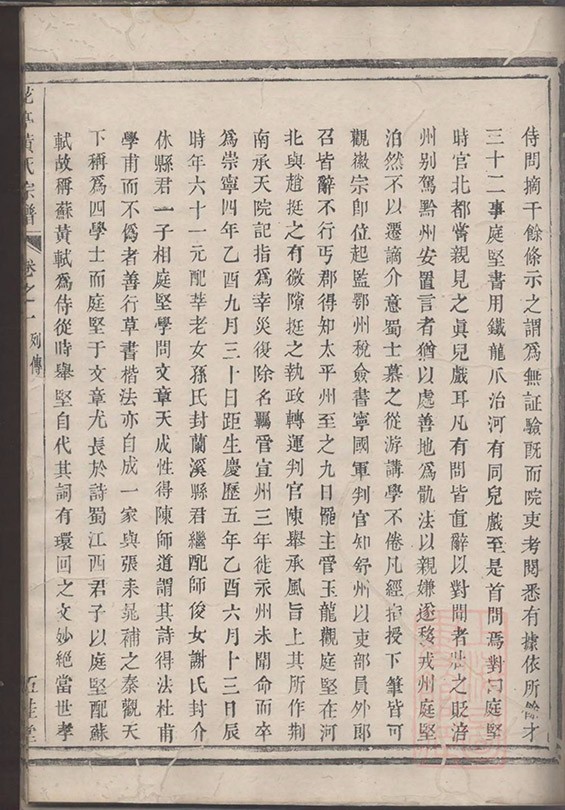 侍問摘千餘條示之謂為無証驗既而院吏考閱悉有據依所餘才
三十二事庭堅書用鐵龍爪治河有同兒戲至是首問焉對曰庭堅
時官北都嘗親見之真兒戲耳凡有問皆直辭以對聞者壯之貶涪
州別駕黔州安置言者猶以處善地為骫法以親嫌遂移戎州庭堅
泊然不以遷謫介意蜀士慕之從游講學不倦凡經指授下筆皆可
觀徽宗即位起監鄂州稅僉書寧國軍判官知舒州以吏部員外郎
召皆辭不行丐郡得知太平州至之九日罷主管玉龍觀庭堅在河
北與趙挺之有微隙挺之執政轉運判官陳舉承風旨上其所作荆
南承天院記指為幸災復除名羈管宜州三年徙永州未聞命而卒
為崇寧四年乙酉九月三十日距生慶歷五年乙酉六月十三日辰
時年六十一元配莘老女孫氏封蘭溪縣君繼配師俊女謝氏封介
休縣君一子相庭堅學問文章天成性得陳師道謂其詩得法杜甫
學甫而不為者善行草書楷法亦自成一家與張耒晁補之秦觀天
下稱為四學士而庭堅于文章尤長於詩蜀江西君子以庭堅配蘇
軾故稱蘇黃軾為侍從時舉堅自代其詞有瓌回之文妙絕當世孝
黃氏宗譜
卷之一
列傳